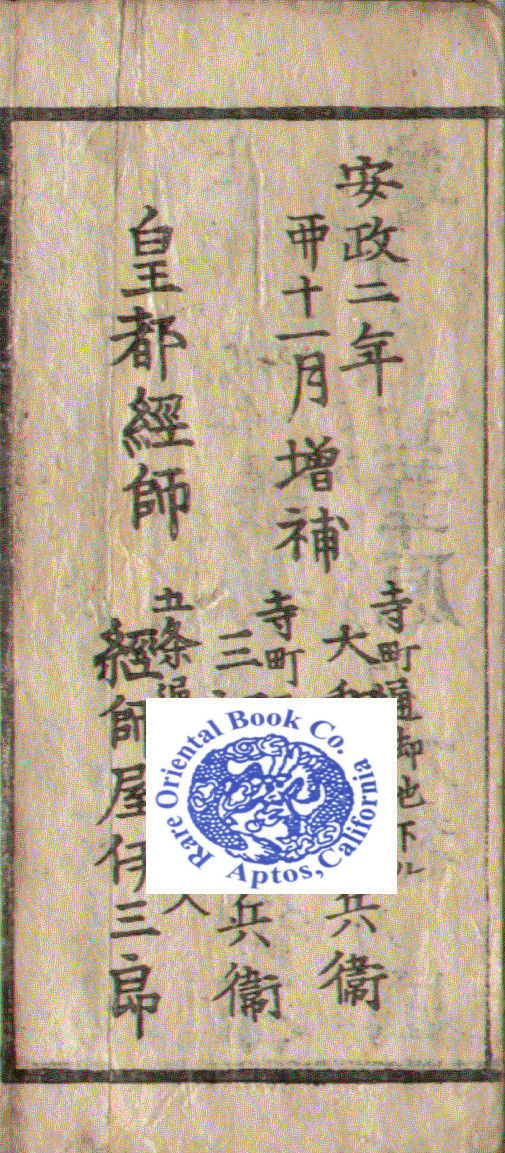 安政二年
十一月増補
皇都經師
寺町通御池下
大 兵衛
寺町
三 兵衛
五條
經師屋伊三郎
Rare Oriental Book Co.
Aptos, California